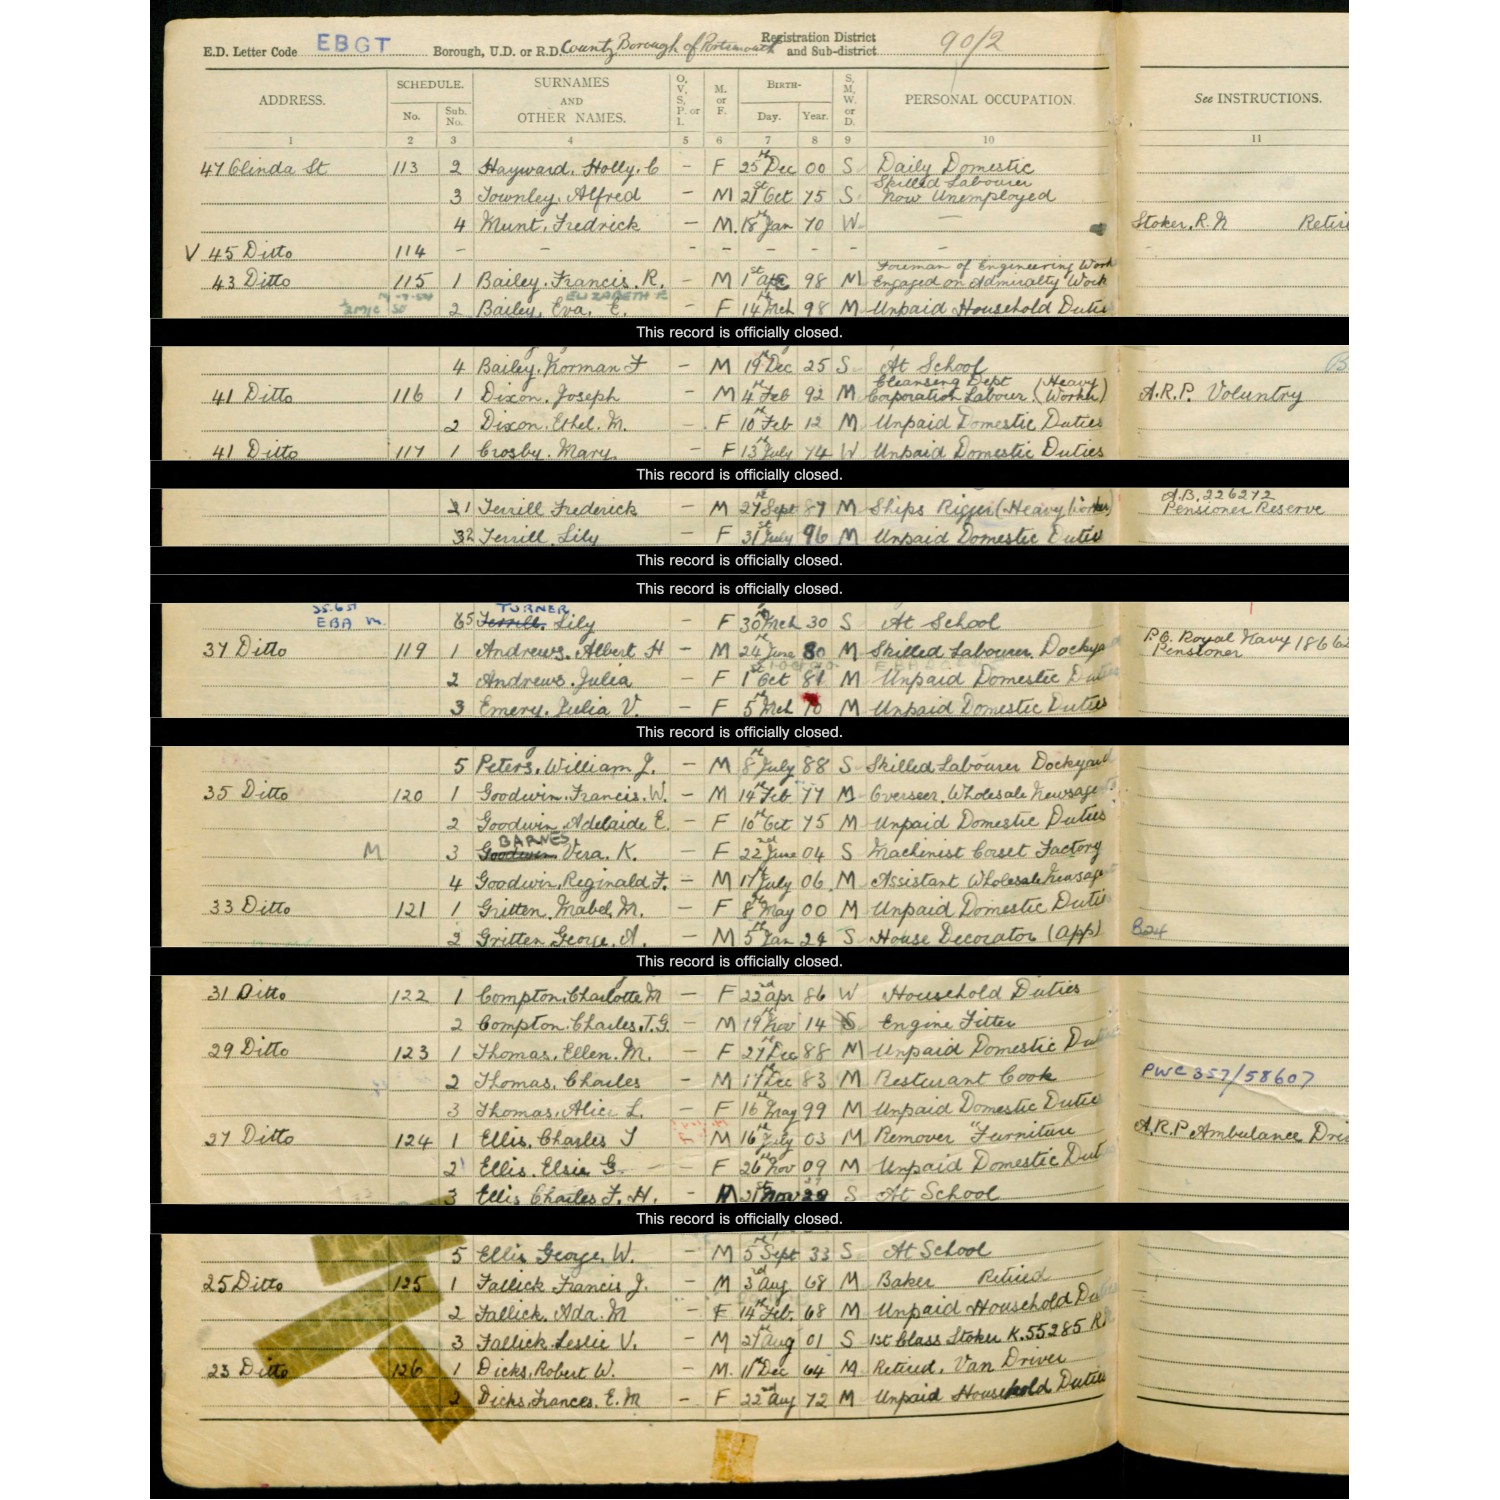 E.D. Letter Code EBGT Borough, U.D. or R.D. County Borough of Portsmouth Registration District and Sub-district 90/2
ADDRESS. SCHEDULE. No. Sub. No. SURNAMES AND OTHER NAMES. O, V, S, P. or I. M. or F. BIRTH- Day. Year. S, M, W, or D. PERSONAL OCCUPATION. See INSTRUCTIONS.
1 2 3 4 5 6 7 8 9 10 11
47 Olinda St 113 2 Hayward, Holly. C - F 25th Dec 00 S Daily Domestic
3 Townley, Alfred - M 21st Oct 75 S Skilled Labourer Now Unemployed
4 Munt, Fredrick - M. 18th Jan 70 W - Stoker, R.N Retir
V 45 Ditto 114 - - - - - -
43 Ditto 115 1 Bailey, Francis. R. - M 1st Apl 98 M Foreman of Engineering Work Engaged on Admiralty Work
ELIZABETH R
2 Bailey, Eva. E. - F 14th Mch 98 M Unpaid Household Duties
This record is officially closed.
4 Bailey, Norman F - M 19th Dec 25 S At School
41 Ditto 116 1 Dixon, Joseph - M 4th Feb 92 M Cleansing Dept Corporation Labour. (Heavy Worker) A.R.P. Voluntry
2 Dixon, Ethel. M. - F 10th Feb 12 M Unpaid Domestic Duties
41 Ditto 117 1 Crosby, Mary. - F 13th July 74 W Unpaid Domestic Duties
This record is officially closed.
21 Terrill Frederick - M 27th Sept 87 M Ships Rigger (Heavy Worker) A.B. 226272 Pensioner Reserve
32 Terrill, Lily - F 31st July 96 M Unpaid Domestic Duties
This record is officially closed.
This record is officially closed.
EBA M. TURNER
65 Terrill, Lily - F 30th Mch 30 S At School
37 Ditto 119 1 Andrews, Albert H - M 24th June 80 M Skilled Labourer. Dockya P.O. Royal Navy 18662 Pensioner
2 Andrews, Julia - F 1st Oct 81 M Unpaid Domestic Duties
3 Emery, Julia V. - F 5th Mch 10 M Unpaid Domestic Duties
This record is officially closed.
5 Peters, William J. - M 8th July 88 S Skilled Labourer Dockyard
35 Ditto 120 1 Goodwin, Francis. W. - M 14th Feb 77 M Overseer, Wholesale Newsage
2 Goodwin, Adelaide E. - F 10th Oct 75 M Unpaid Domestic Duties
BARNES
M 3 Goodwin, Vera. K. - F 22nd June 04 S Machinist Corset Factory
4 Goodwin, Reginald F. - M 17th July 06. M Assistant Wholesale Newsage
33 Ditto 121 1 Gritten, Mabel, M. - F 8th May 00 M Unpaid Domestic Duties
2 Gritten George, A. - M 5th Jan 24 S House Decorator (App) B24
This record is officially closed.
31 Ditto 122 1 Compton, Charlotte M - F 22nd Apr 86 W Household Duties
2 Compton, Charles, T.G. - M 19th Nov 14 S Engine Fitter
29 Ditto 123 1 Thomas, Ellen. M. - F 27th Dec 88 M Unpaid Domestic Duties
2 Thomas, Charles - M 17th Dec 83 M Resturant Cook PWC 357/58607
3 Thomas, Alice L. - F 16th May 99 M Unpaid Domestic Duties
27 Ditto 124 1 Ellis, Charles T - M 16th July 03 M Remover "Furniture A.R.P Ambulance Dri
2 Ellis. Elsie G. - F 26th Nov 09 M Unpaid Domestic Dut
3 Ellis Charles F. H. - M 21st Nov S At School
This record is officially closed.
5 Ellis George, W. - M 5th Sept 33 S At School
25 Ditto 125 1 Fallick Francis J. - M 3rd Aug 68 M Baker Retired
2 Fallick, Ada. M - F 14th Feb. 68 M Unpaid Household Du
3 Fallick, Leslie V. - M 27th Aug 01 S 1st Class Stoker K.55285 R
23 Ditto 126 1 Dicks, Robert W. - M. 11th Dec 64 M Retired, Van Driver
2 Dicks, Frances, E. M - F 22nd Aug 72 M Unpaid Household Duties